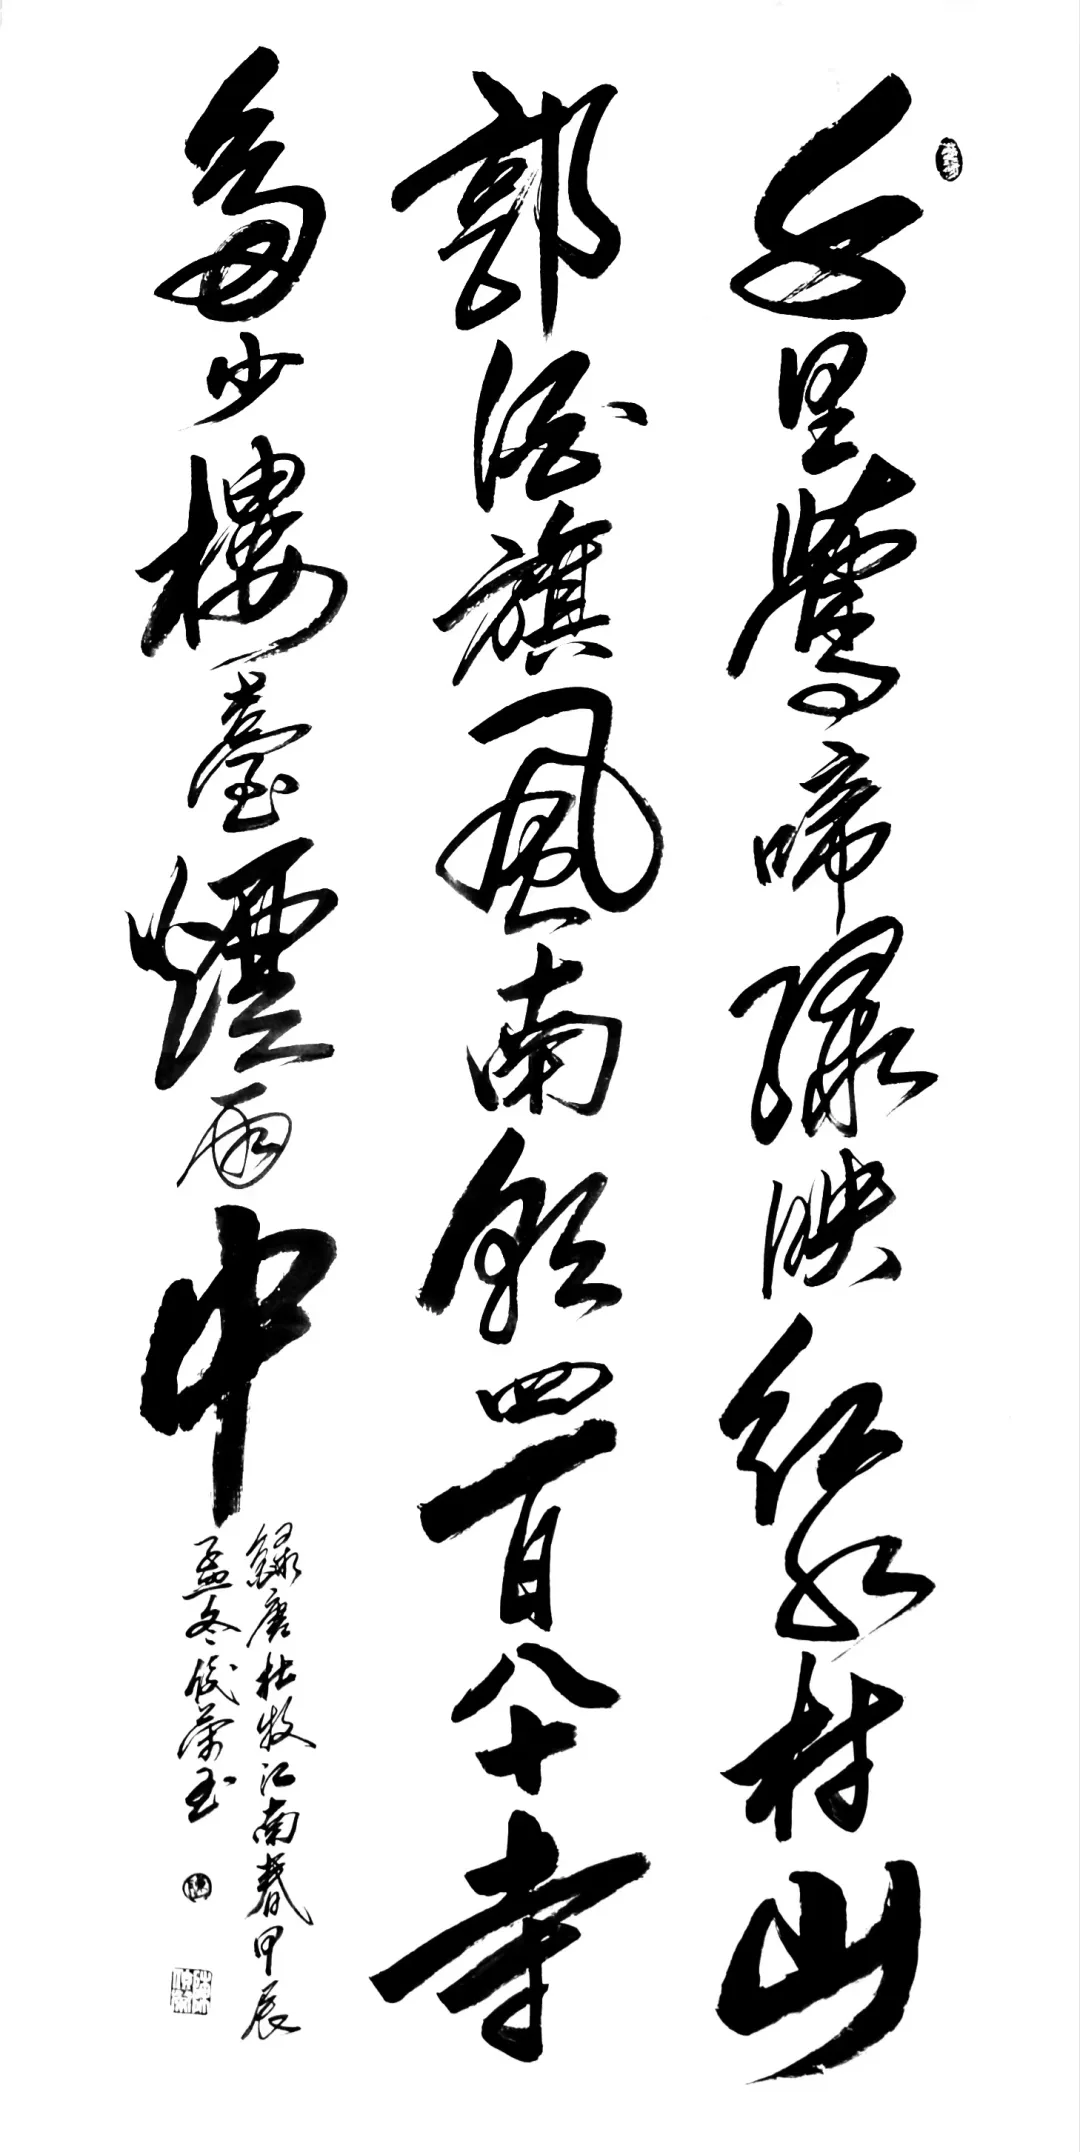 千里鶯啼绿映红水村山
郭酒旗風南朝四百八十寺
多少樓臺煙雨中
錄唐杜牧江南春甲辰
孟冬